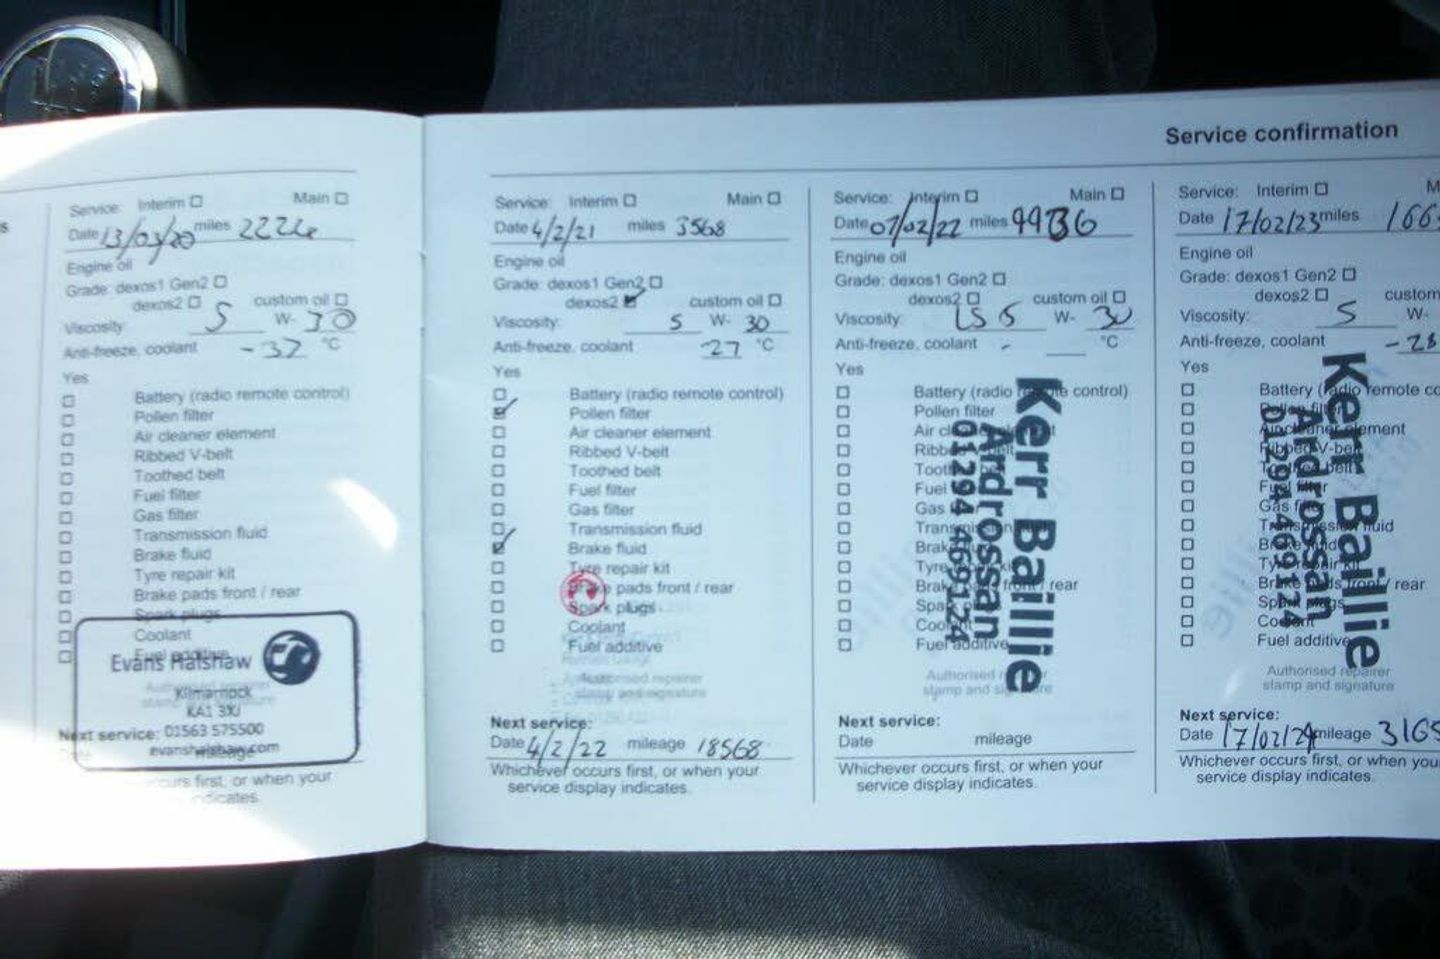 Service confirmation
Service: Interim Main
Date 13/03/20 miles
Engine oil
Grade: dexos1 Gen2
dexos2 custom oil
Viscosity: 5 W- 30
Anti-freeze, coolant -37 °C
Yes
Battery (radio remote control)
Pollen filter
Air cleaner element
Ribbed V-belt
Toothed belt
Fuel filter
Gas filter
Transmission fluid
Brake fluid
Tyre repair kit
Brake pads front / rear
Spark plugs
Coolant
Fuel additive
Evans Halshaw
Kilmarnock
KA1 3XJ
01563 575500
evanshalshaw.com
Next service:
occurs first, or when your
indicates.
Service: Interim Main
Date 4/2/21 miles 3568
Engine oil
Grade: dexos1 Gen2
dexos2 custom oil
Viscosity: 5 W- 30
Anti-freeze, coolant -27 °C
Yes
Battery (radio remote control)
Pollen filter
Air cleaner element
Ribbed V-belt
Toothed belt
Fuel filter
Gas filter
Transmission fluid
Brake fluid
Tyre repair kit
Brake pads front / rear
Spark plugs
Coolant
Fuel additive
Authorised repairer
stamp and signature
Next service:
Date 4/2/22 mileage 18568
Whichever occurs first, or when your
service display indicates.
Service: Interim Main
Date 07/02/22 miles
Engine oil
Grade: dexos1 Gen2
dexos2 custom oil
Viscosity: 5 W- 30
Anti-freeze, coolant - °C
Yes
Battery (radio remote control)
Pollen filter
Air
Ribbed
Toothed
Fuel
Gas
Transmission
Brake
Tyre
Brake pads front / rear
Spark
Coolant
Fuel additive
Kerr Baillie
Ardrossan
01294 469124
Authorised repairer
stamp and signature
Next service:
Date mileage
Whichever occurs first, or when your
service display indicates.
Service: Interim M
Date 17/02/23 miles 166
Engine oil
Grade: dexos1 Gen2
dexos2 custom
Viscosity: 5 W-
Anti-freeze, coolant -28
Yes
Battery (radio remote co
Pollen filter
Air cleaner element
Ribbed V-belt
Toothed belt
Fuel filter
Gas filter
Transmission fluid
Brake fluid
Tyre repair kit
Brake pads front / rear
Spark plugs
Coolant
Fuel additive
Kerr Baillie
Ardrossan
01294 469124
Authorised repairer
stamp and signature
Next service:
Date 17/02/24 mileage 316
Whichever occurs first, or when you
service display indicates.